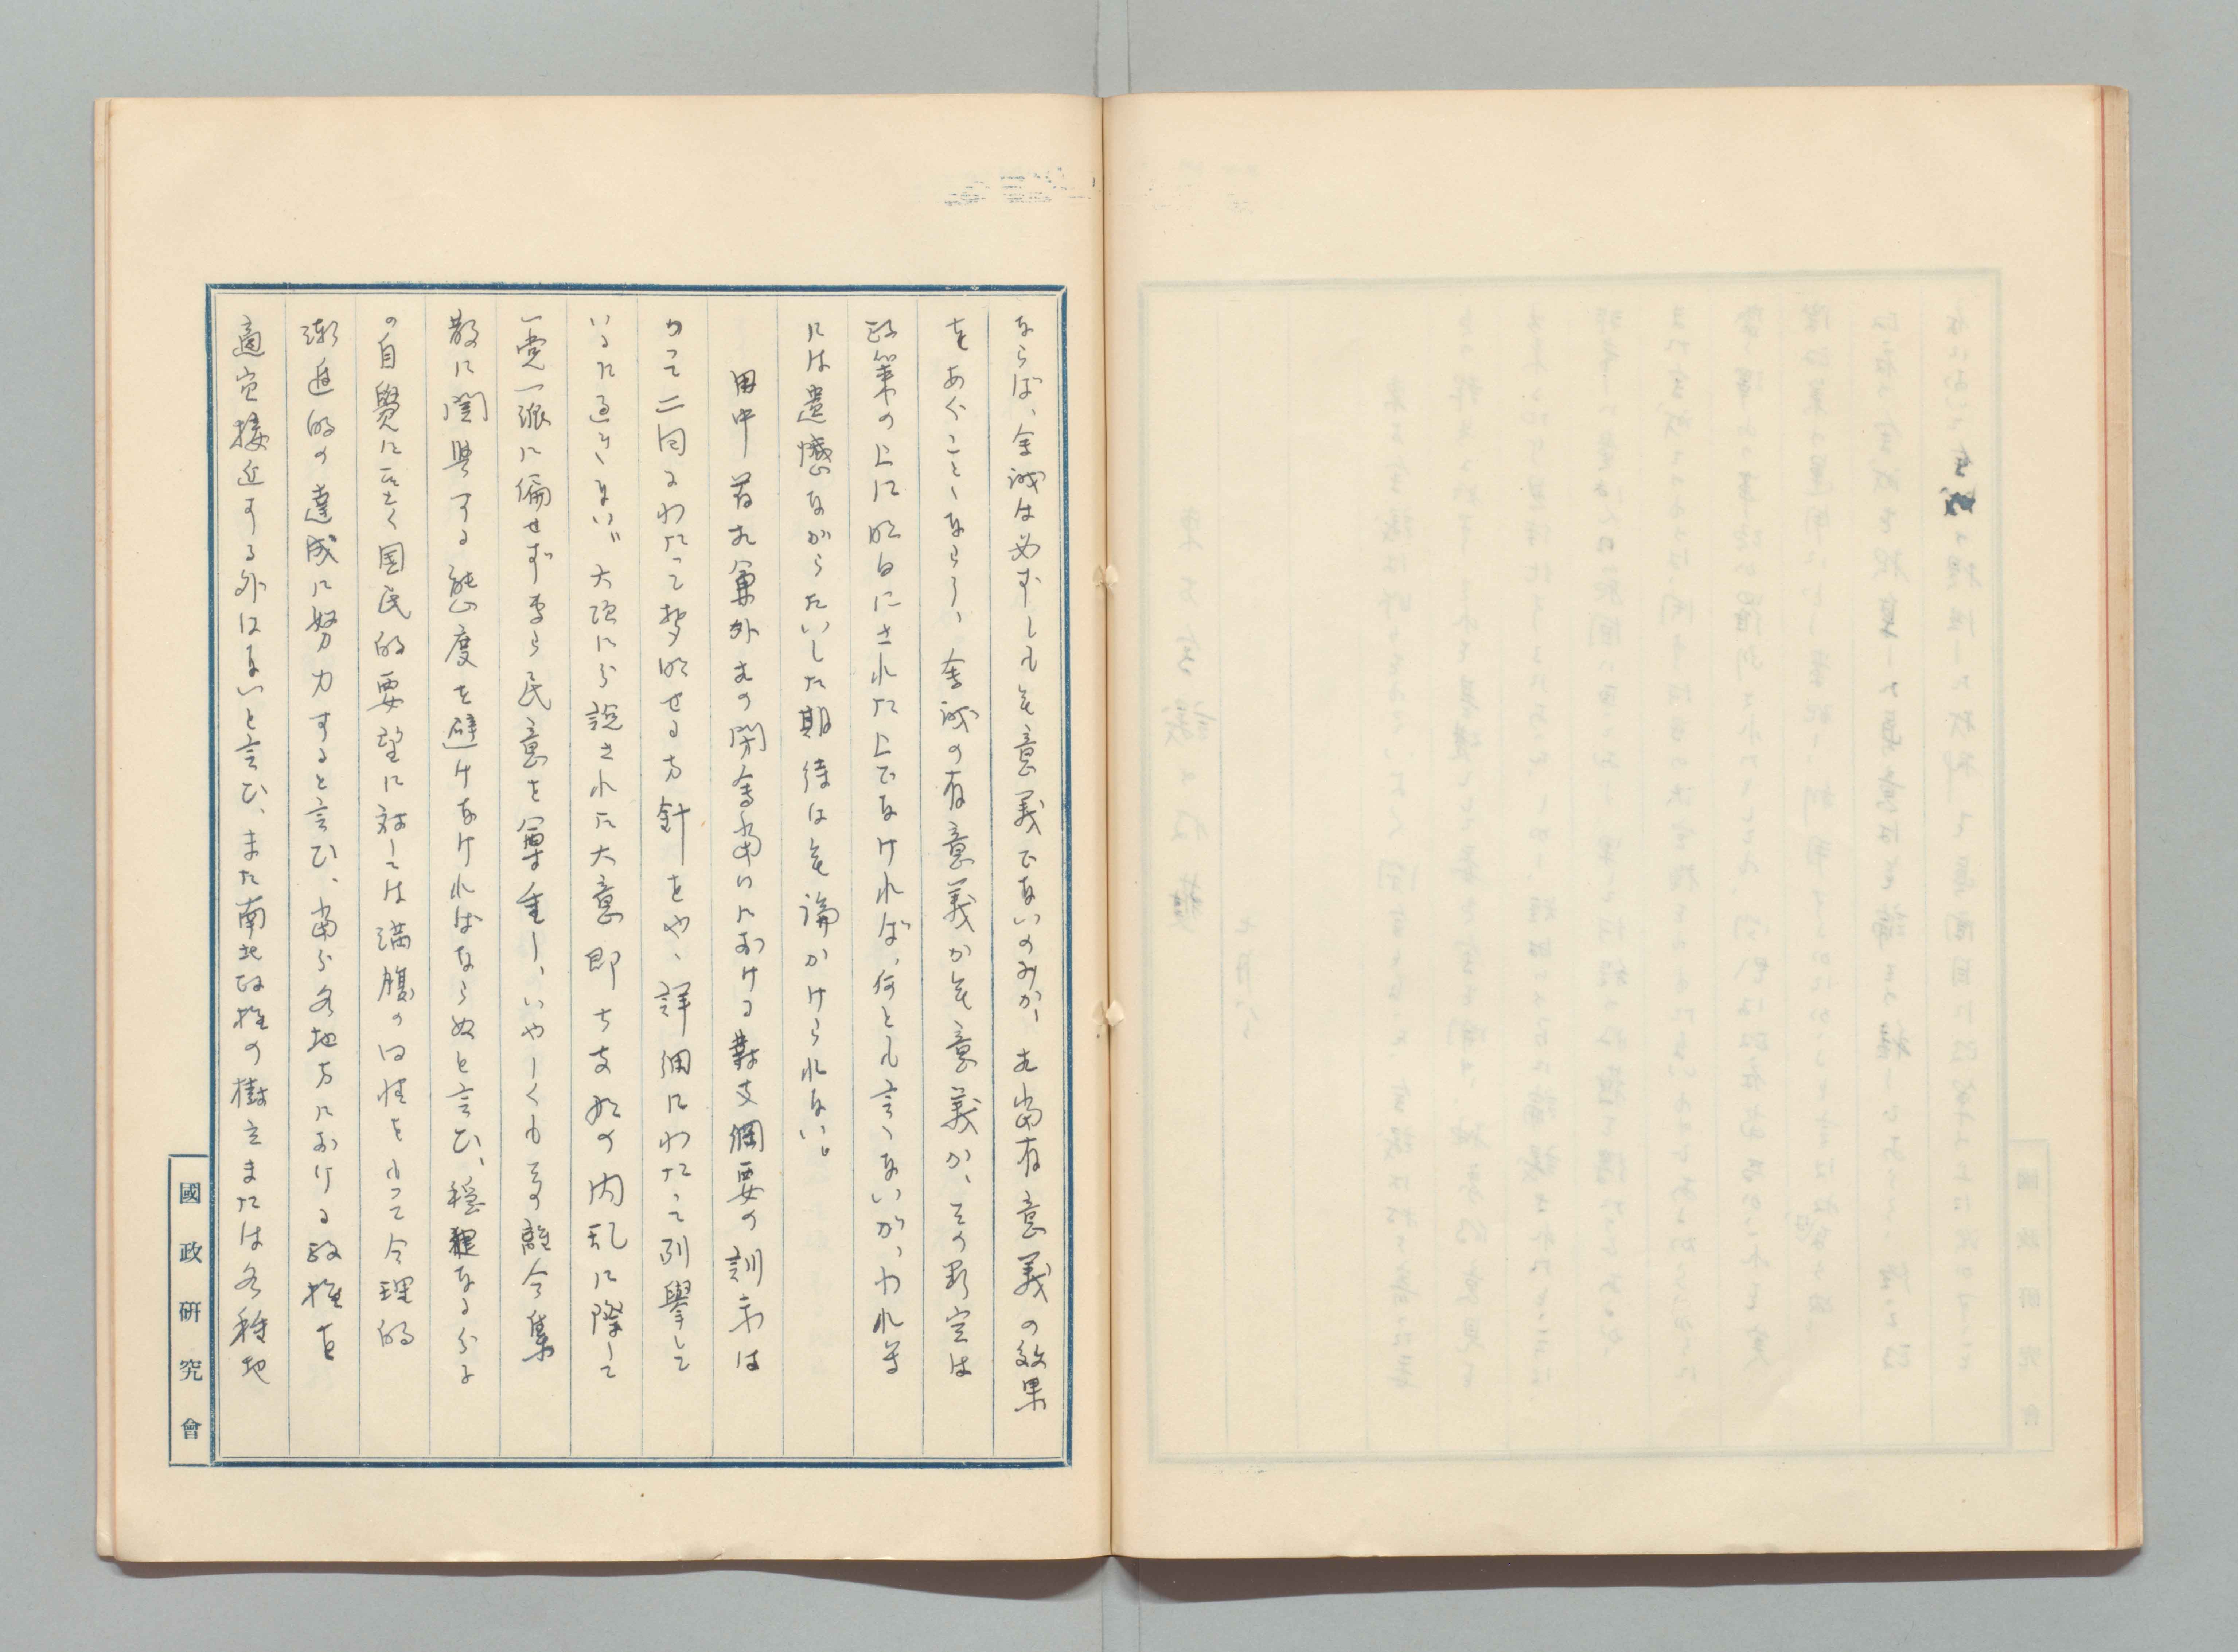 ならば、会議は必ずしも無意義でないのみか、相当有意義の效果
をあぐことゝならう、会議の有意義か無意義か、その断定は
政策の上に明白にされた上でなければ、何とも言へないが、われ等
には遺憾ながらたいした期待は無論かけられない。
田中首相兼外相の閉会当日における対支綱要の訓示は
かつて二回にわたって声明せる方針をや、詳細にわたって列挙して
いるに過ぎない。大要に分説された大意即ち支那の内乱に際して
一党一派に偏せず専ら民意を尊重し、いやしくもその離合集
散に関与する態度を避けなければならぬと言ひ、穏健なる分子
の自覚に基く国民的要望に対しては満腹の同情をもって合理的
漸進的の達成に努力すると言ひ、当分各地方における政権を
適宜接近する外はないと言ひ、また南北政権の樹立または各種地
國政研究會